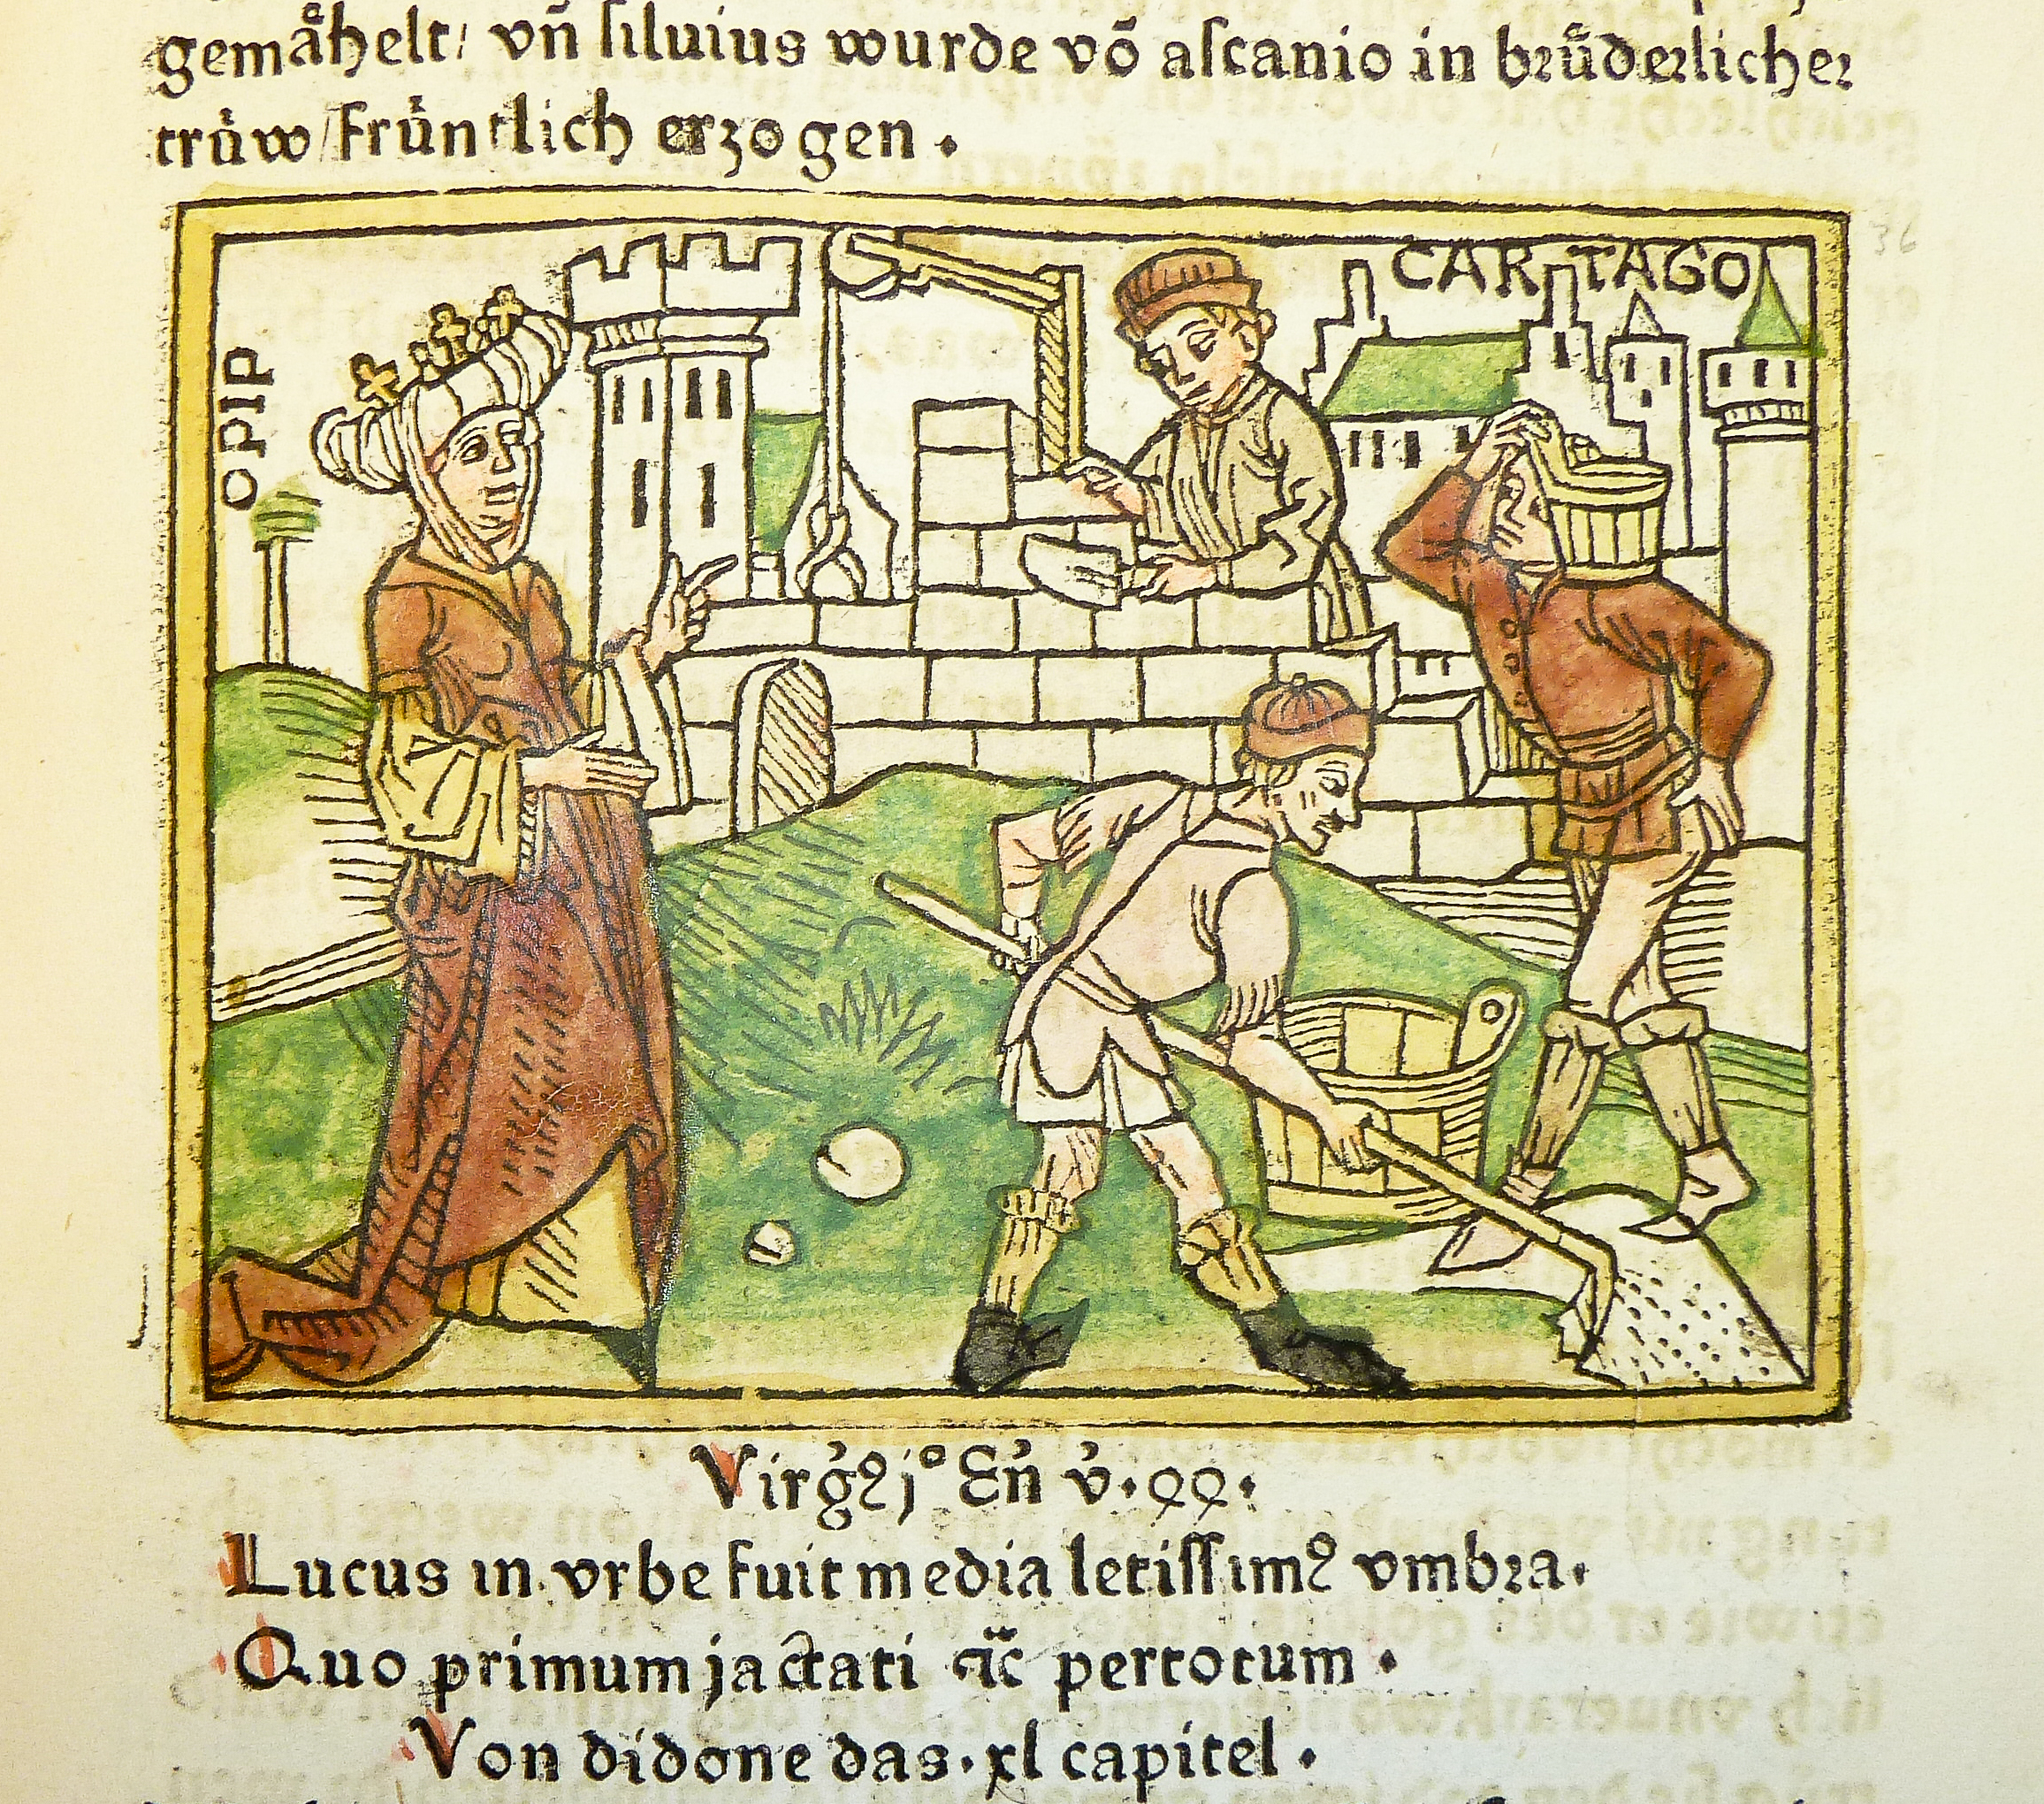 gemåhelt/ vñ siluius wurde võ ascanio in brůderlicher
trůw/ früntlich erzogen.
OPIP
CARTAGO
36
Lucus in vrbe fuit media letissimꝰ vmbra.
Quo primum jactati pertotum.
Von didone das. xl capitel.